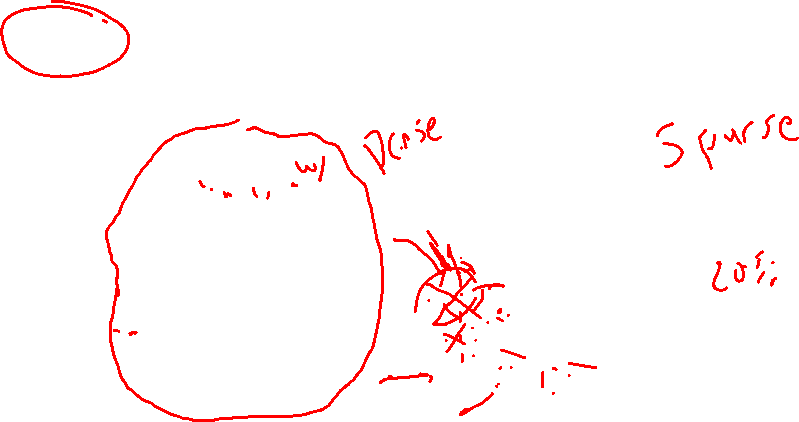 Dense
Sparse
w/
20%